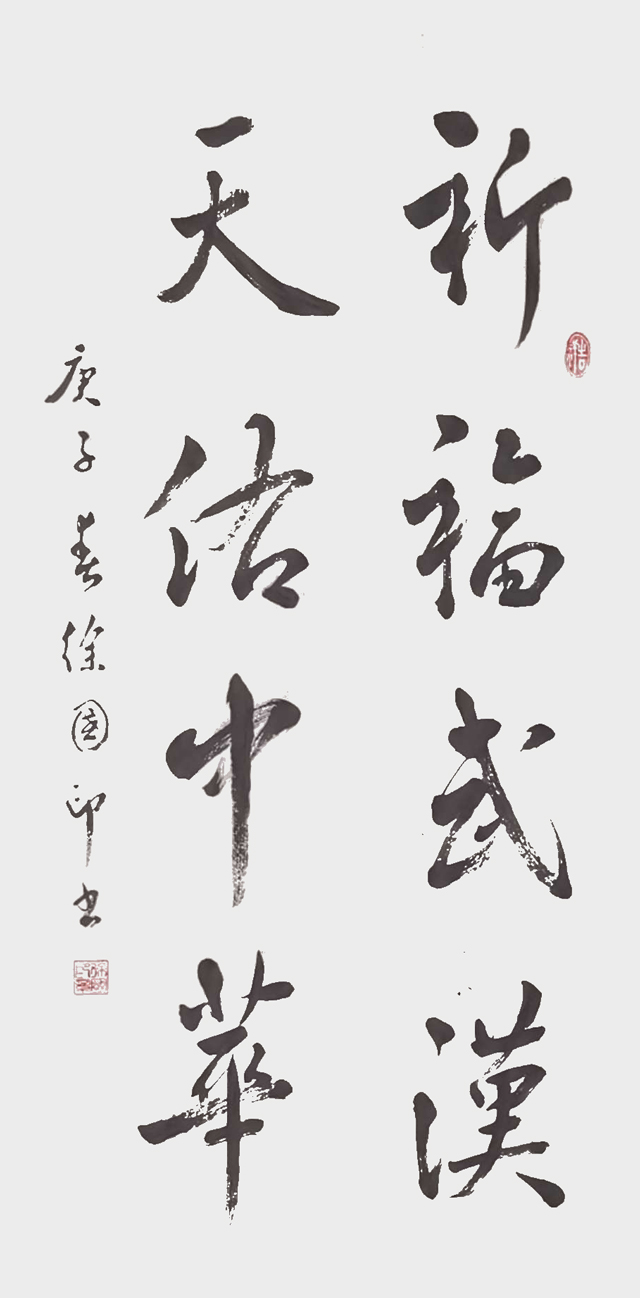 祈福武漢
天佑中華
庚子春徐國印书